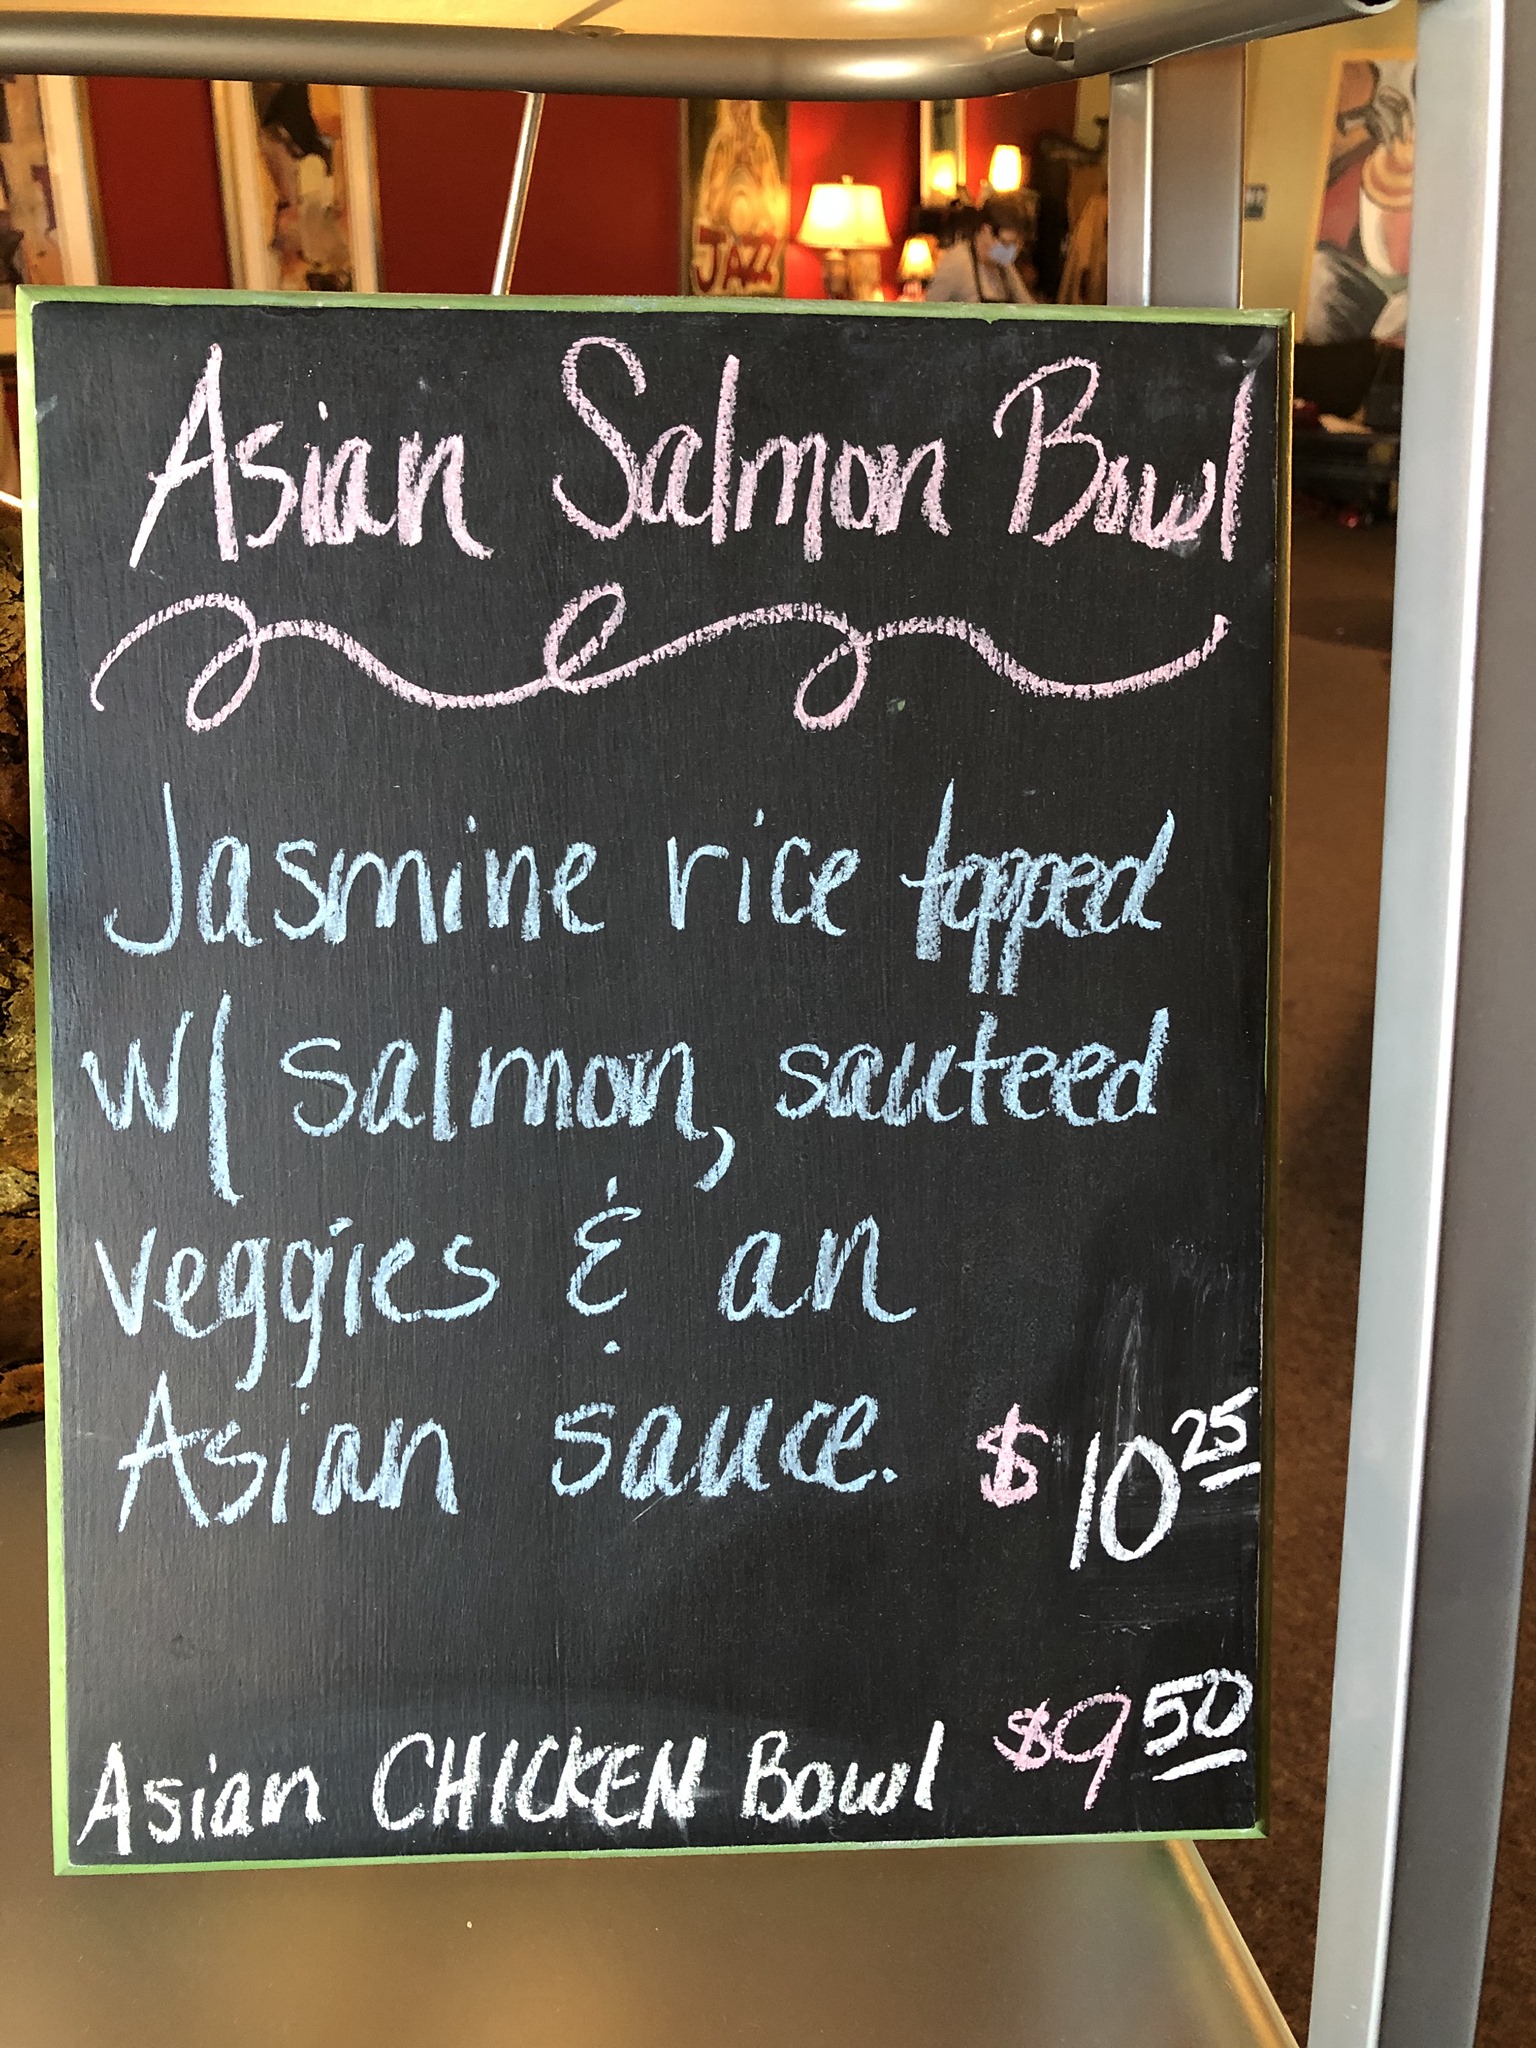 JAZZ
Asian Salmon Bowl
Jasmine rice topped
w/ salmon, sauteed
veggies & an
Asian sauce. $10 25
Asian CHICKEN Bowl $9 50